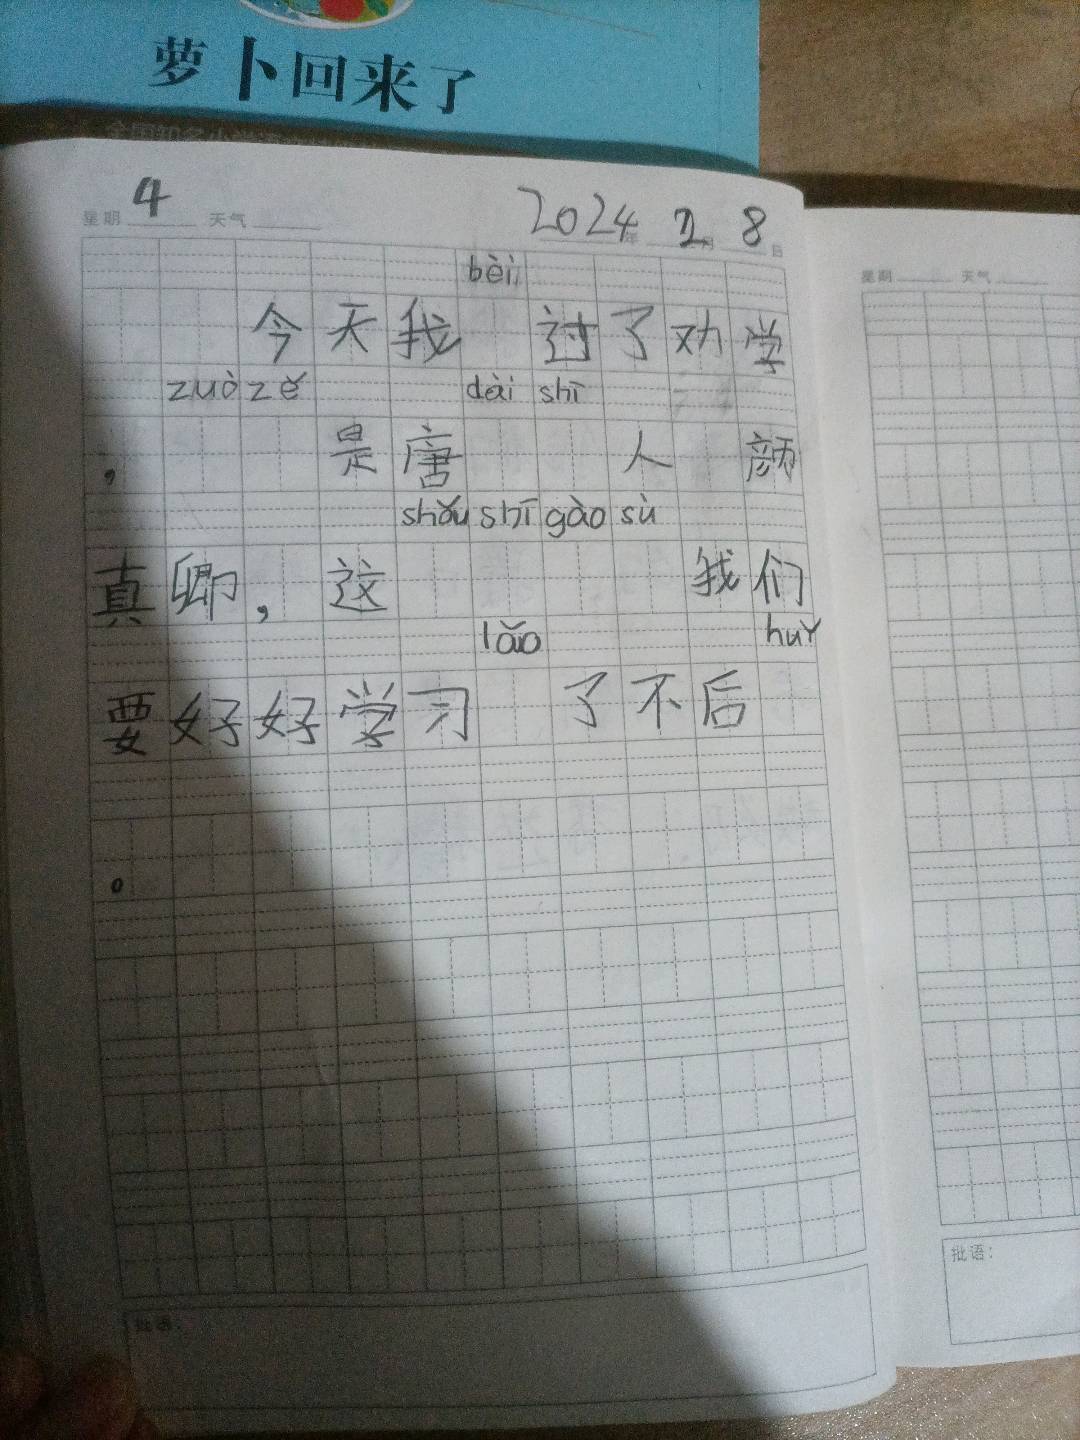 萝卜回来了
星期 4 天气 2024年 2月 8日
bèi
今天我 过了劝学
zuò zě dài shī
， 是唐 人 颜
shǒu shī gào sù
真卿，这 我们
lǎo huǐ
要好好学习 了不后
。
批语：
星期 天气
批语：